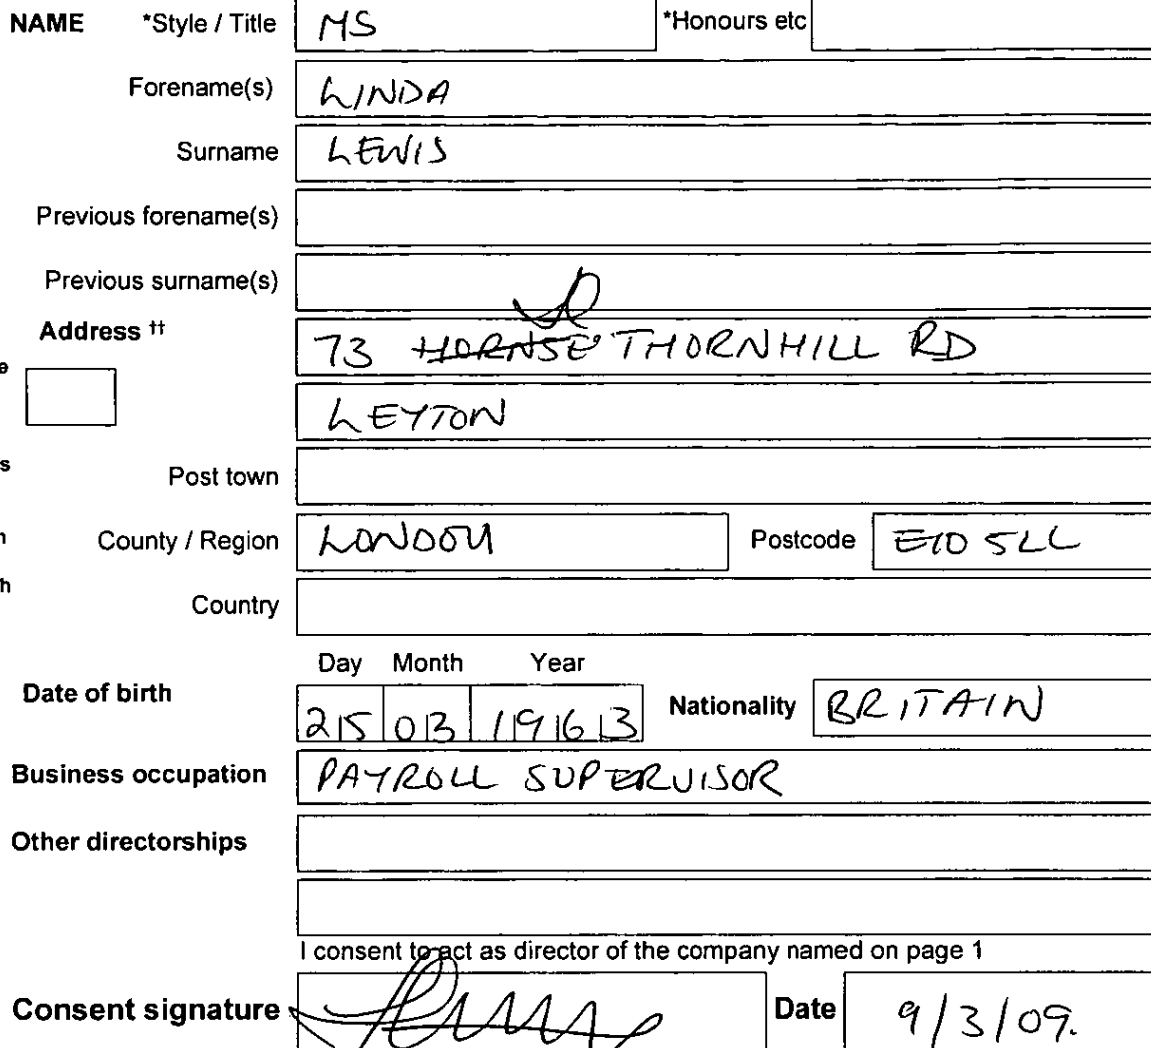 NAME *Style / Title MS *Honours etc
Forename(s) LINDA
Surname LEWIS
Previous forename(s)
Previous surname(s)
Address ††
73 HORNSE THORNHILL RD
e
LEYTON
s
Post town
n
County / Region LONDON Postcode E10 5LL
h
Country
Day Month Year
Date of birth 25 03 1963 Nationality BRITAIN
Business occupation PAYROLL SUPERVISOR
Other directorships
I consent to act as director of the company named on page 1
Consent signature Date 9/3/09.